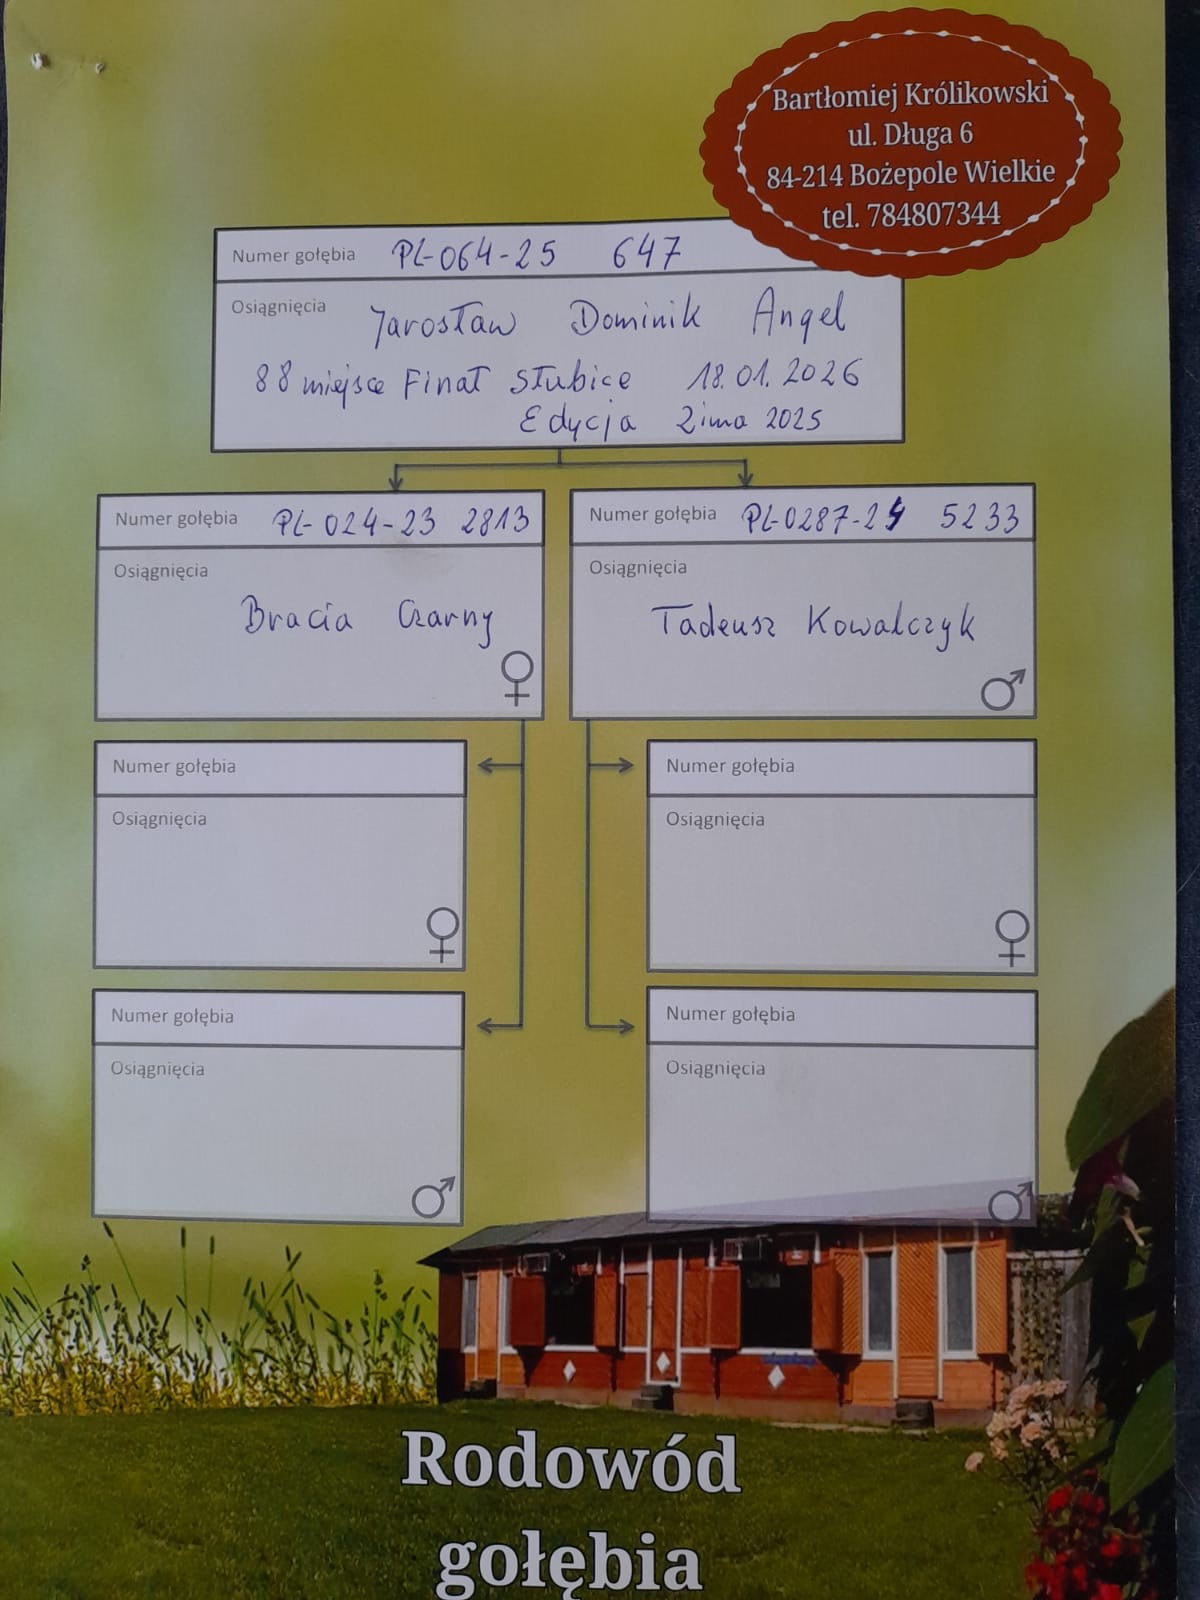 Bartłomiej Królikowski
ul. Długa 6
84-214 Bożepole Wielkie
tel. 784807344
Numer gołębia PL-064-25 647
Osiągnięcia
Jarosław Dominik Angel
88 miejsce Finał Słubice 18.01.2026
Edycja Zima 2025
Numer gołębia PL-024-23 2813
Osiągnięcia
Bracia Czarny
♀
Numer gołębia PL-0287-24 5233
Osiągnięcia
Tadeusz Kowalczyk
♂
Numer gołębia
Osiągnięcia
♀
Numer gołębia
Osiągnięcia
♀
Numer gołębia
Osiągnięcia
♂
Numer gołębia
Osiągnięcia
♂
Rodowód
gołębia